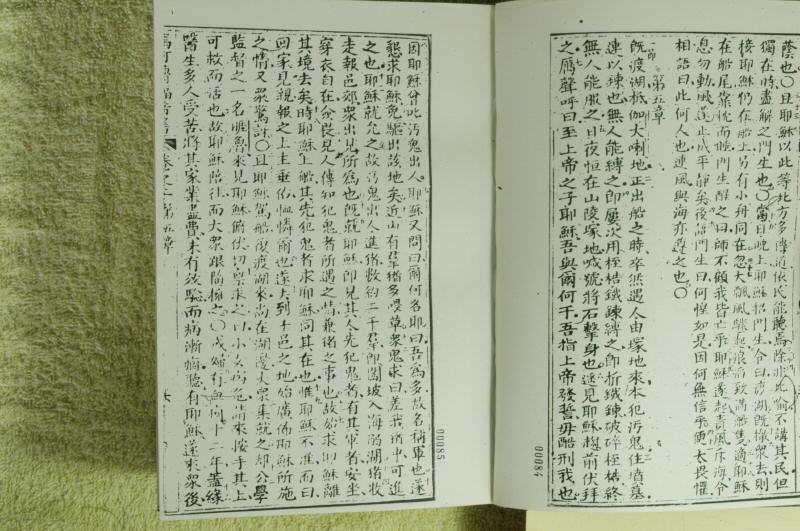 蔭也〇且耶穌以此等比方多傳道依民能聽焉除非比喻不講其民但
獨在時盡解之門生也〇當日晚上耶穌招門生令曰渡湖既撇衆去則
接耶穌仍在船上另有小舟同在忽大飄風驟起浪滔致滿船隻適耶穌
在船尾靠枕而睡門生醒之曰師不顧我皆亡乎耶穌遂起責風斥海令
息勿動風遂止成平靜矣後語門生曰何惶如是因何無信乎便大畏懼
相語曰此何人也連風與海亦遵之也〇
第五章
一節
既渡湖抵伽大喇地正出船之時卒然遇人由塚地來本犯污鬼住墳墓
連以鍊也無人能縛之即屢次用桎梏鐵鍊縛之即折鐵鍊破碎桎梏終
無人能服之日夜恒在山陵塚地喊號將石擊身也遥見耶穌趨前伏拜
之厲聲呼曰至上帝之子耶穌吾與爾何干吾指上帝發誓毋酷刑我也
00084
因耶穌曾叱污鬼出人耶穌又問曰爾何名即曰吾為多故名稱軍也遂
懇求耶穌免驅出該地矣近山有羣猪多喫草衆鬼求曰差我猪中可進
之也耶穌就允之故污鬼出人進猪數約二千羣即闖坡入海溺湖猪牧
走報邑郊衆出見所為也既就耶穌即見其人先犯鬼者有其軍者安坐
穿衣自在僉畏見人傳知犯鬼者所遇之情兼猪之事也故始求耶穌離
其境去矣時耶穌上船其先犯鬼者求耶穌同其在也惟耶穌不准而曰
回家見親報之上主垂佑恤憐爾也遂去到十邑之地始廣佈耶穌所施
之情又衆驚訝〇且耶穌駕船復渡湖來尚在湖邊大衆集就之却公學
監督之一名睚魯來見耶穌俯伏切祟求之曰小女病危請來按手其上
可救而活也故耶穌陪往而大衆跟隨擁之〇或婦有血何十二年蓋緣
醫生多人受苦將其家業盡費未有效驗而病漸痼聽有耶穌遂來衆後
00085